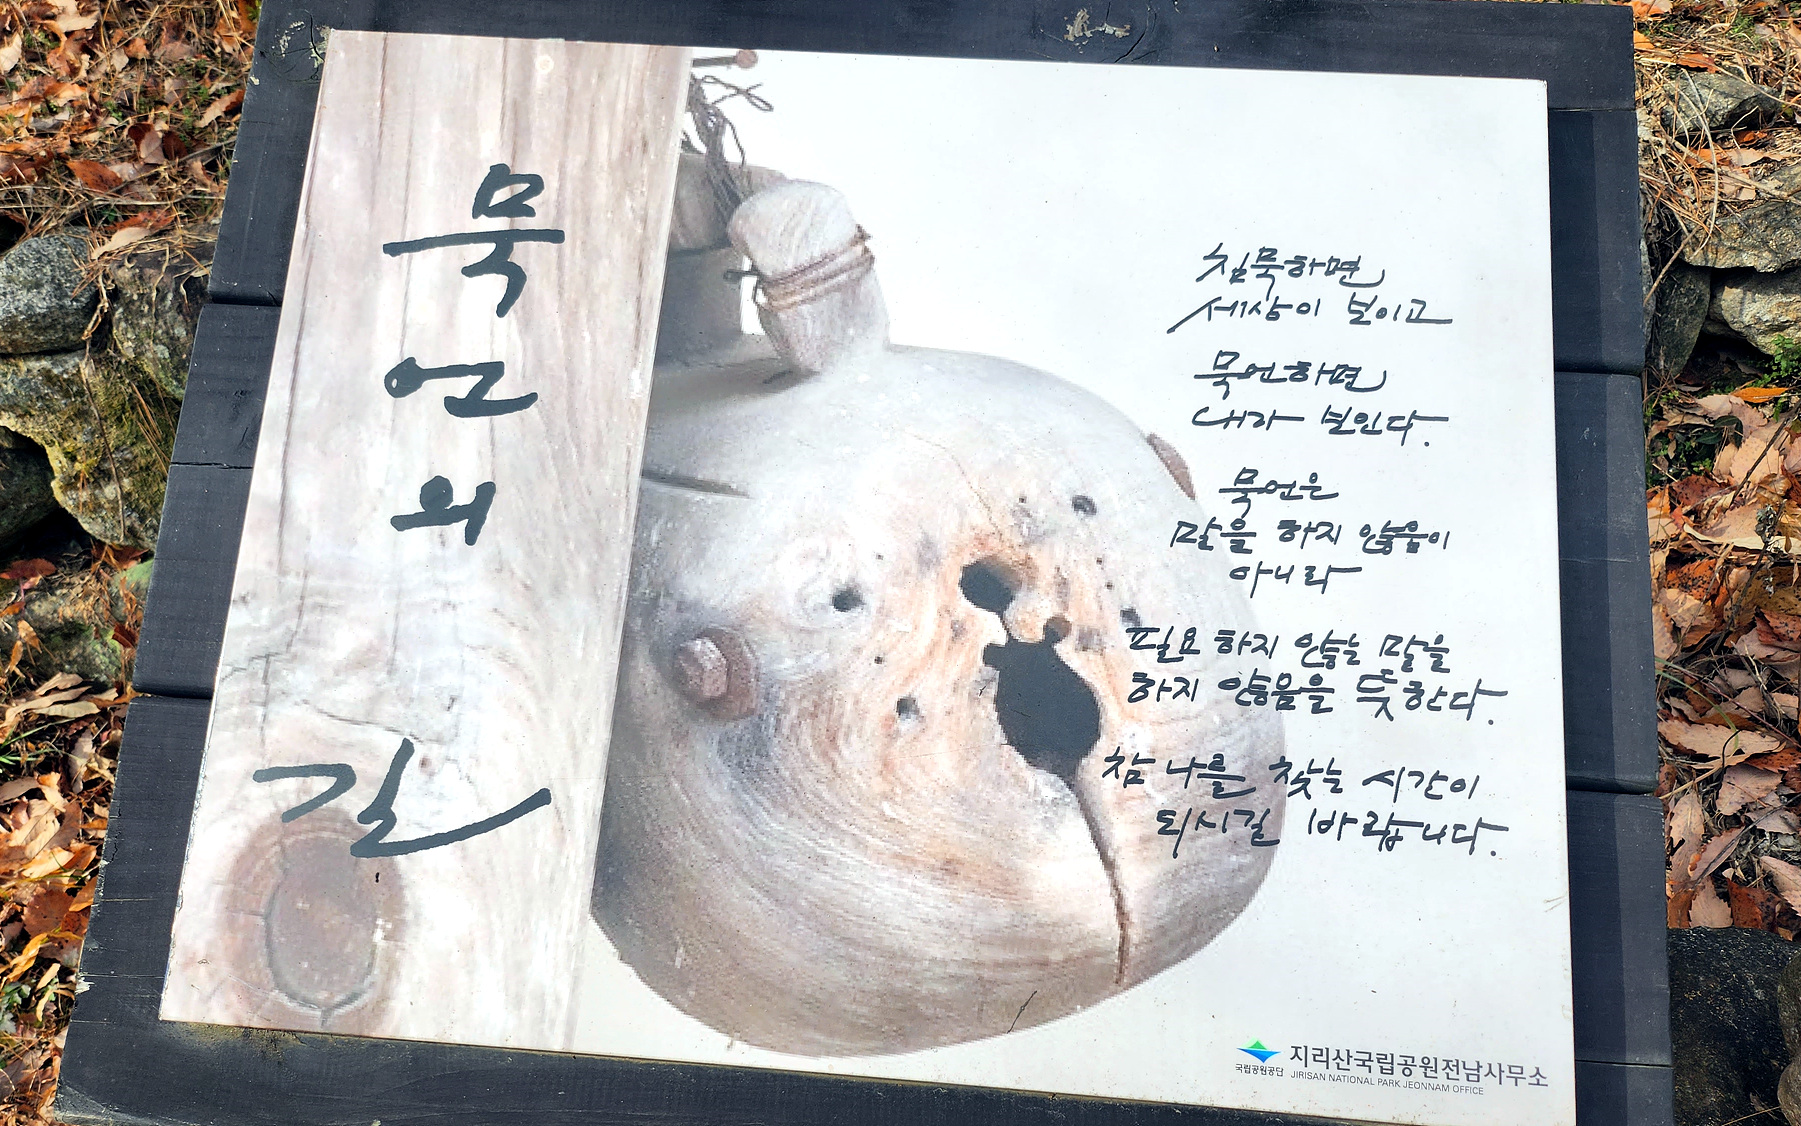 묵언의
길
침묵하면
세상이 보이고
묵언하면
내가 보인다.
묵언은
말을 하지 않음이
아니라
필요 하지 않는 말을
하지 않음을 뜻한다.
참 나를 찾는 시간이
되시길 바랍니다.
국립공원공단
지리산국립공원전남사무소
JIRISAN NATIONAL PARK JEONNAM OFFICE